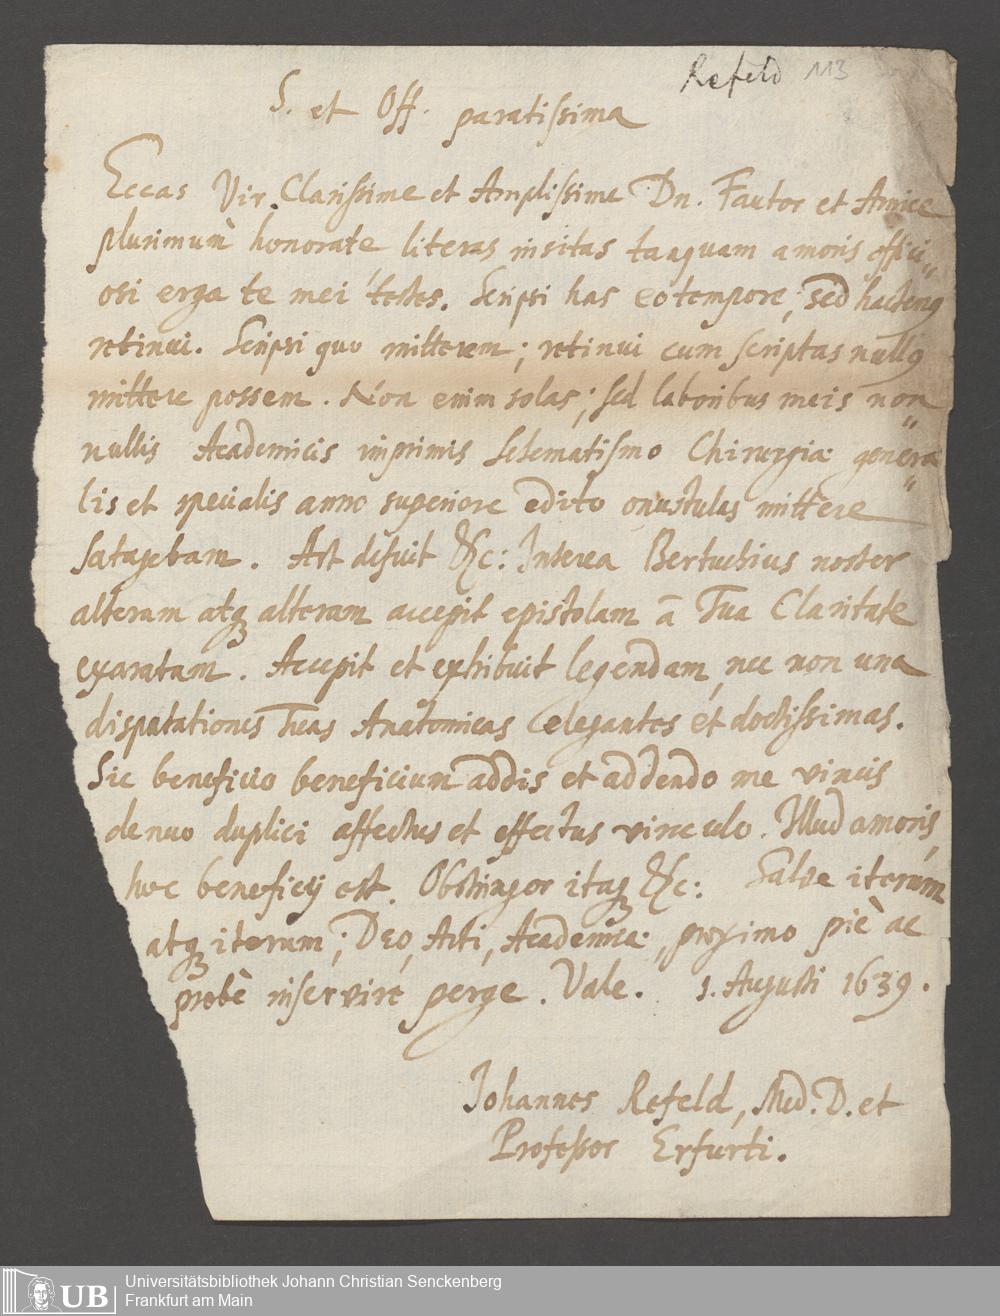 Refeld 113
S. et Off. paratissima
Eccas Vir Clarissime et Amplissime Dn. Fautor et Amice
plurimum honorate literas insitas tanquam amoris offici„
osi erga te mei testes. Scripsi has eo tempore, sed hactenꝰ
retinui. Scripsi quo mitterem; retinui cum scriptas nullꝰ
mittere possem. Non enim solas; sed laboribus meis non„
nullis Academicis imprimis Schematismo Chirurgiæ genera„
lis et specialis anno superiore edito onustulas mittere
satagebam. Ast defuit &c: Interea Bertuchius noster
alteram atq₃ alteram accepit epistolam à Tua Claritate
exaratam. Accepit et exhibuit legendam, nec non una
disputationes Tuas Anatomicas elegantes et doctissimas.
Sic beneficio beneficium addis et addendo me vincis
denuo duplici affectus et effectus vinculo. Illud amoris,
hoc beneficij est. Obstringor itaq₃ &c: Salve iterum
atq₃ iterum; Deo, Arti, Academiæ, proximo piè ac
probè inservire perge. Vale. 1. Augusti 1639.
Johannes Refeld, Med. D. et
Professor Erfurti.
UB
Universitätsbibliothek Johann Christian Senckenberg
Frankfurt am Main